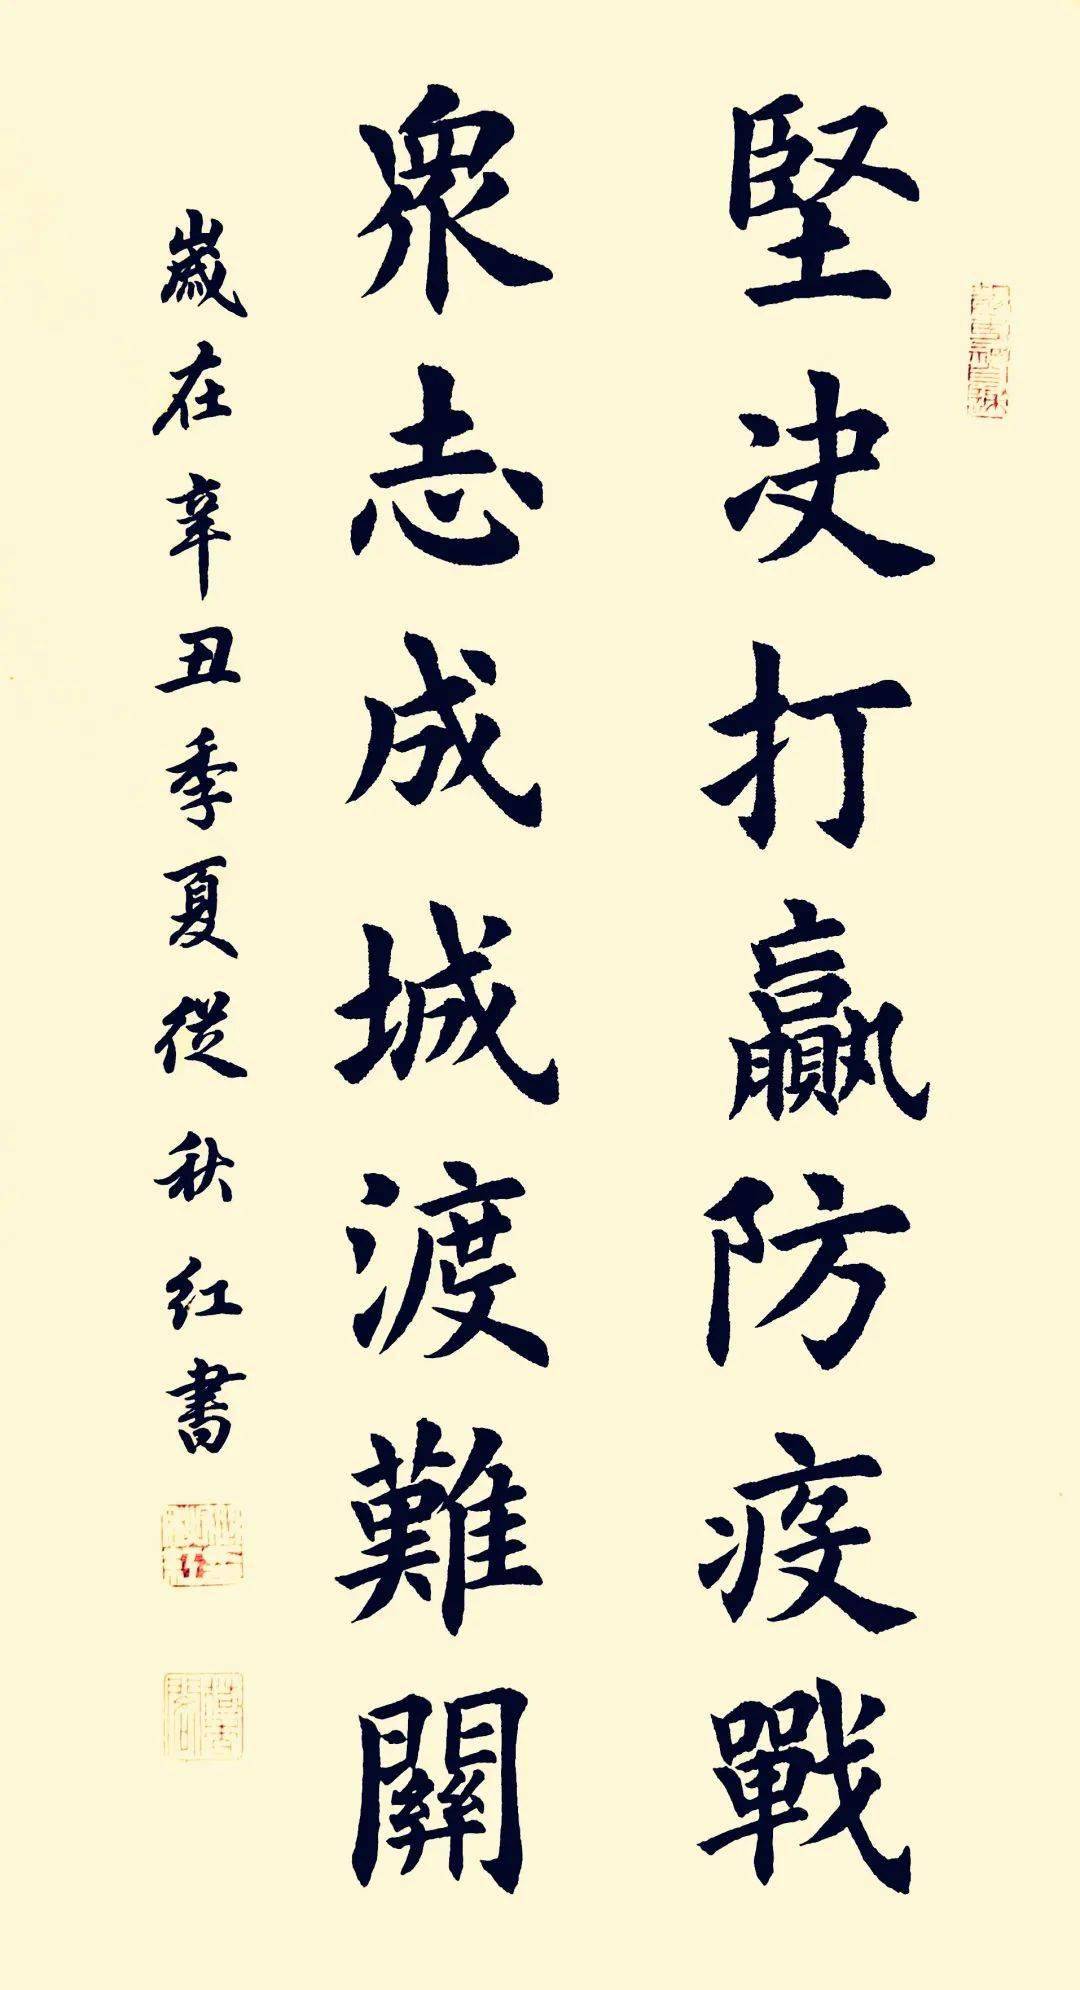 堅决打贏防疫戰
衆志成城渡難關
歲在辛丑季夏從秋红書